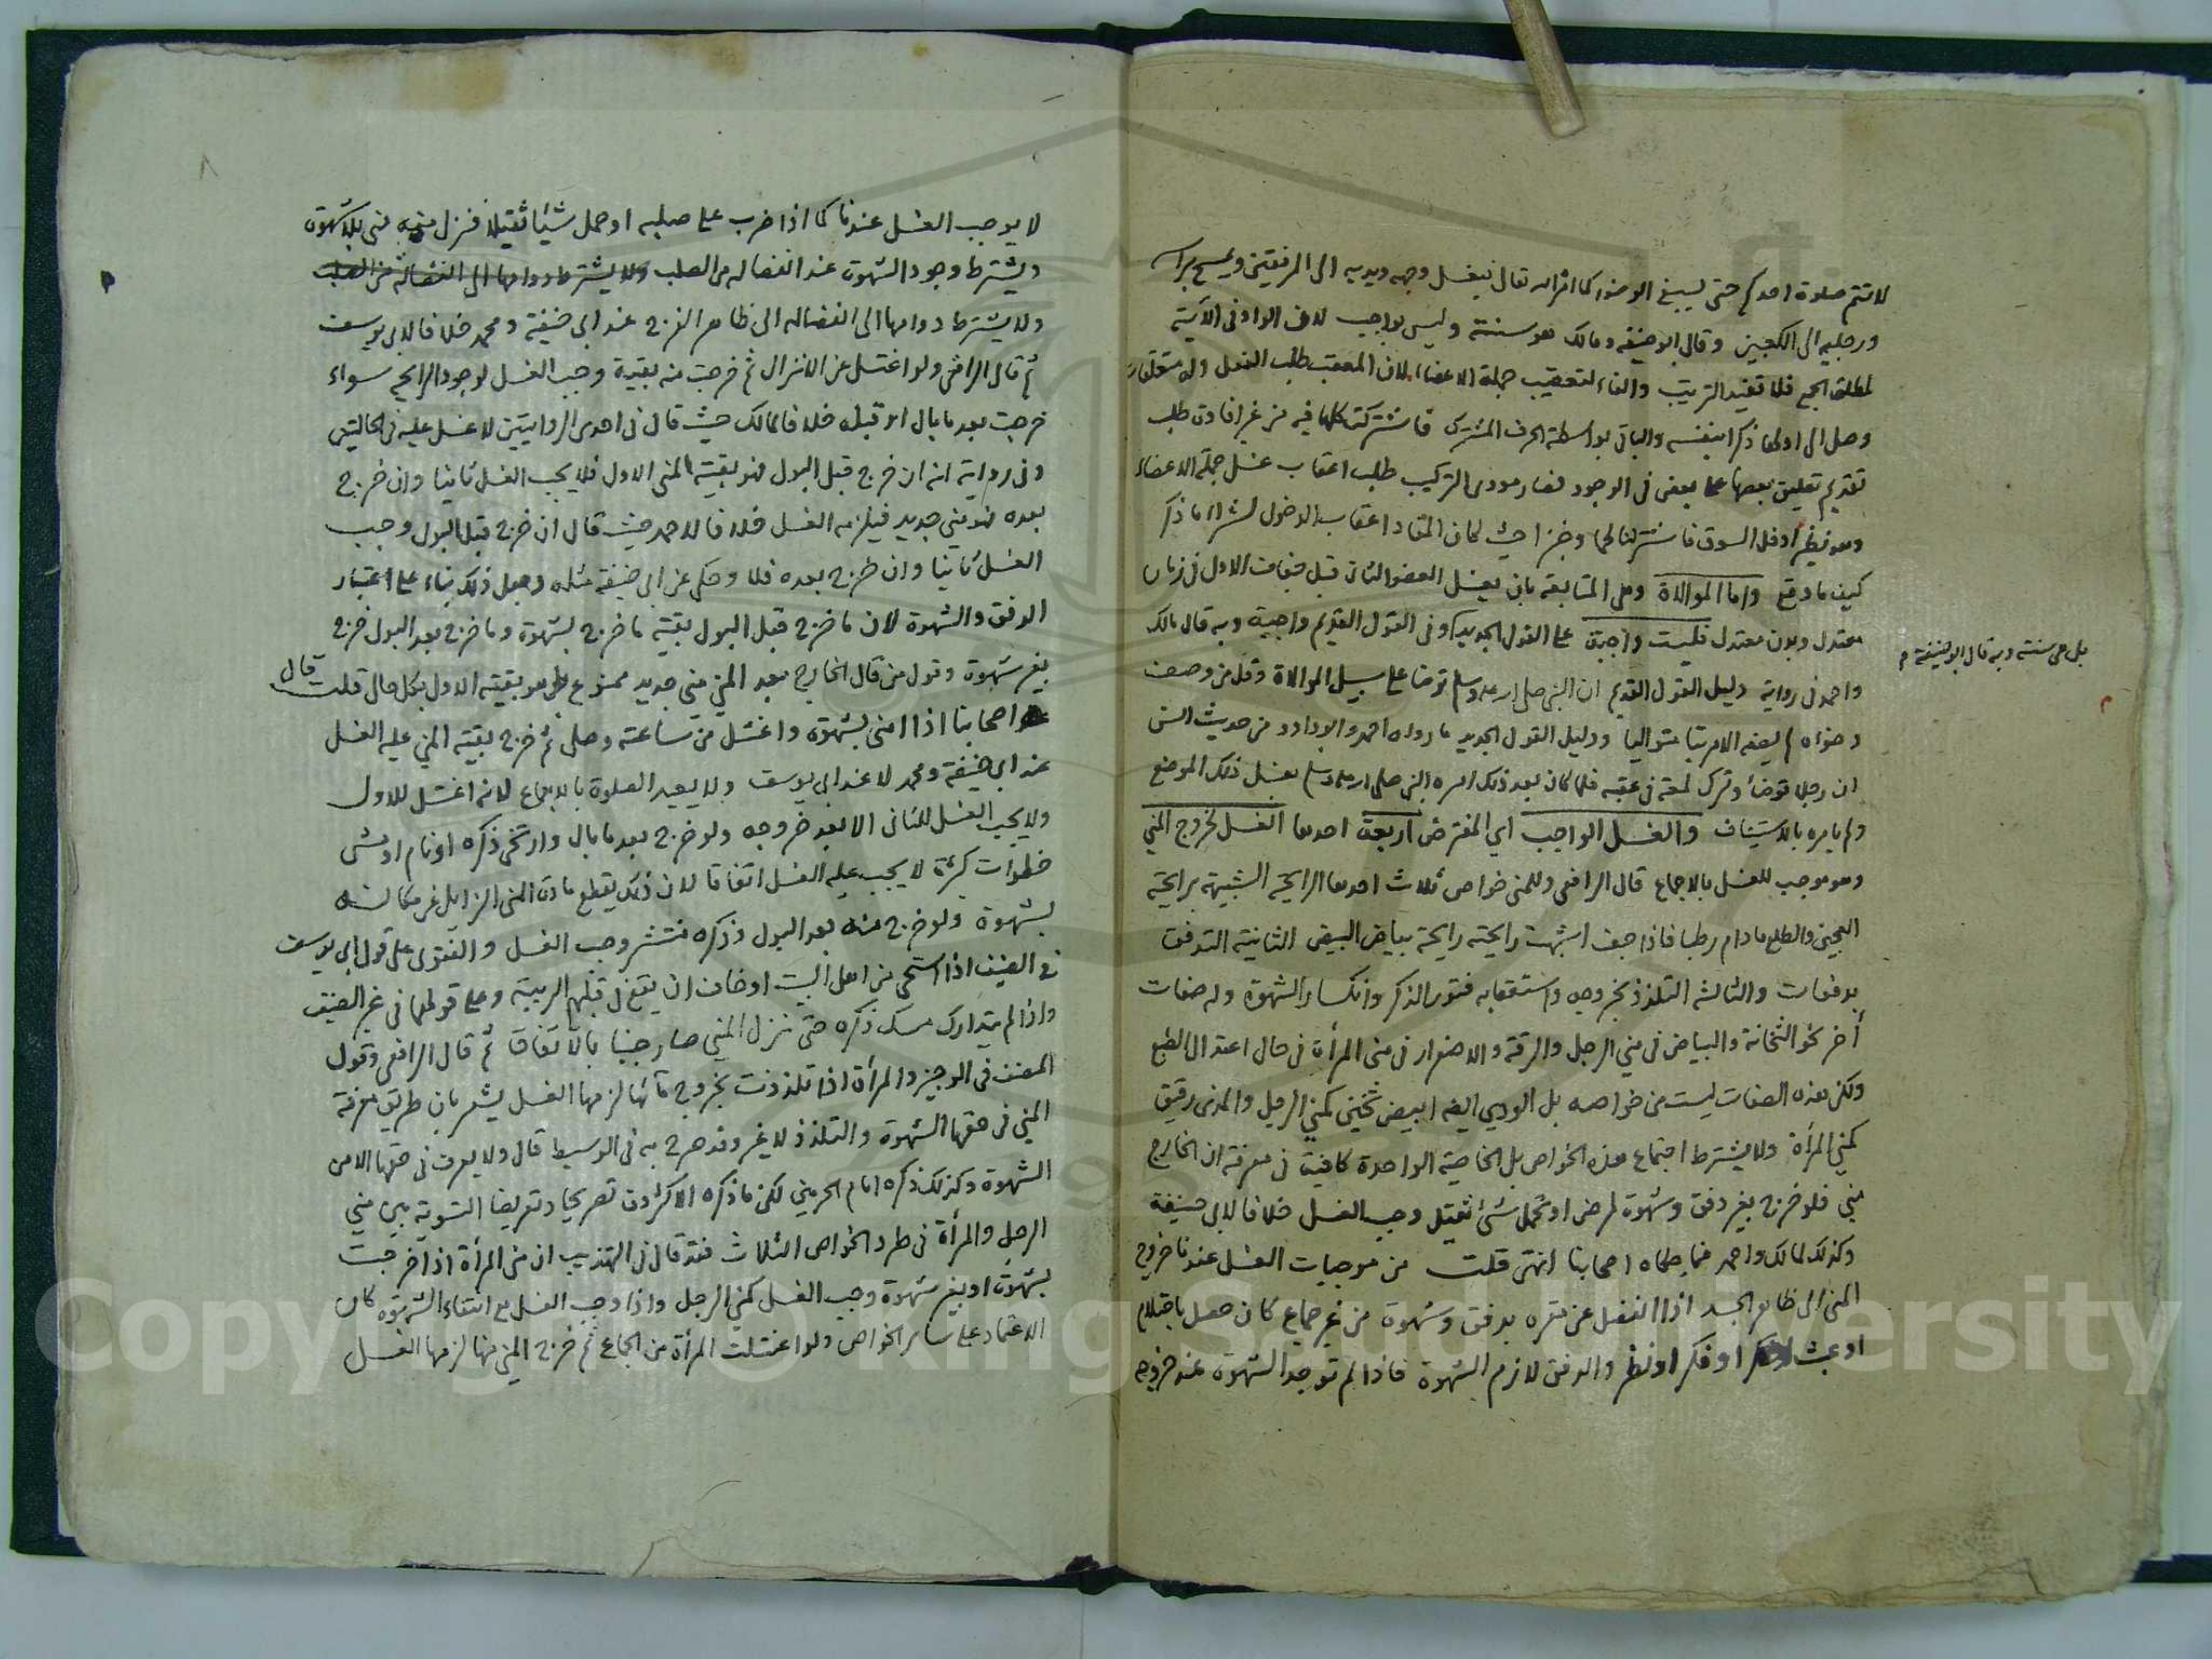 لا تتم صلوة احدكم حتى يسبغ الوضوء كما امر الله تعالى فيغسل وجهه ويديه الى المرفقين ويمسح براسه
ورجليه الى الكعبين وقال ابو حنيفة ومالك هو سنة وليس بواجب لان الواو في الآية
لمطلق الجمع فلا تفيد الترتيب والفاء لتعقيب جملة الاعضاء لان المعقب طلب الفعل وله متعلقات
وصل الى اولها ذكرا بنفسه والباقي بواسطة الحرف المشترك فاشتركت كلها فيه من غير افادة طلب
تقديم تعليق بعضها على بعض في الوجود فصار مودى التركيب طلب اعقاب غسل جملة الاعضاء
وهو نظير ادخل السوق فاشتر لنا لحما وخبزا حيث كان المفاد اعقاب الدخول لشراء ما ذكر
كيف ما وقع واما الموالاة وهي المتابعة بان يغسل العضو الثاني قبل جفاف الاول في زمان
معتدل وبدن معتدل فليست واجبة على القول الجديد وفي القول القديم واجبة وبه قال مالك
بل هي سنة وبه قال ابو حنيفة
واحمد في رواية دليل القول القديم ان النبي صلى الله عليه وسلم توضا على سبيل الموالاة وقل من وصف
وضوءه لم يصفه الا مرتبا متواليا ودليل القول الجديد ما رواه احمد وابو داود من حديث انس
ان رجلا توضأ وترك لمعة في عقبه فلما كان بعد ذلك امره النبي صلى الله عليه وسلم بغسل ذلك الموضع
ولم يامره بالاستيناف والغسل الواجب اي المفترض اربعة احدها الغسل لخروج المني
وهو موجب للغسل بالاجماع قال الرافعي وللمني خواص ثلاث احدها الرايحة الشبيهة برايحة
العجين والطلع مادام رطبا فاذا جف اشبهت رايحته رايحة بياض البيض الثانية التدفق
بدفعات والثالثة التلذذ بخروجه واستعقابه فتور الذكر وانكسار الشهوة وله صفات
أخر نحو الثخانة والبياض في مني الرجل والرقة والاصفرار في مني المرأة في حال اعتدال الطبع
ولكن هذه الصفات ليست من خواصه بل الودي ايضا ابيض ثخين كمني الرجل والمذي رقيق
كمني المرأة ولا يشترط اجتماع هذه الخواص بل الخاصية الواحدة كافية في معرفة ان الخارج
مني فلو خرج بغير دفق وشهوة لمرض او تحمل شئ ثقيل وجب الغسل خلافا لابي حنيفة
وكذلك لمالك واحمد فيما حكاه اصحابنا انتهى قلت من موجبات الغسل عندنا خروج
المني الى ظاهر الجسد اذا انفصل عن مقره بدفق وشهوة من غير جماع كان حصل باحتلام
او عبث او فكر او نظر والدفق لازم الشهوة فاذا لم توجد الشهوة عند خروجه
لا يوجب الغسل عندنا كما اذا ضرب على صلبه او حمل شيئا ثقيلا فنزل منه مني بلا شهوة
ويشترط وجود الشهوة عند انفصاله من الصلب ولا يشترط دوامها الى انفصاله من الصلب
ولا يشترط دوامها الى انفصاله الى ظاهر الفرج عند ابي حنيفة ومحمد خلافا لابي يوسف
ثم قال الرافعي ولو اغتسل عن الانزال ثم خرجت منه بقية وجب الغسل لوجود الرايحة سواء
خرجت بعد ما بال او قبله خلافا لمالك حيث قال في احدى الروايتين لا غسل عليه في الحالتين
وفي رواية انه ان خرج قبل البول فهو بقية المني الاول فلا يجب الغسل ثانيا وان خرج
بعده فهو مني جديد فيلزمه الغسل خلافا لاحمد حيث قال ان خرج قبل البول وجب
الغسل ثانيا وان خرج بعده فلا وحكي عن ابي حنيفة مثله وجعل ذلك بناء على اعتبار
الدفق والشهوة لان ما خرج قبل البول بقية ما خرج بشهوة وما خرج بعد البول خرج
بغير شهوة وقول من قال الخارج بعد المني مني جديد ممنوع بل هو بقية الاول بكل حال قلت قال
اصحابنا اذا امنى بشهوة واغتسل من ساعته وصلى ثم خرج بقية المني عليه الغسل
عند ابي حنيفة ومحمد لا عند ابي يوسف ولا يعيد الصلوة بالاجماع لانه اغتسل للاول
ولا يجب الغسل للثاني الا بعد خروجه ولو خرج بعد ما بال وارتخى ذكره او نام او مشى
خطوات كثيرة لا يجب عليه الغسل اتفاقا لان ذلك يقطع مادة المني الزايل عن مكانه
بشهوة ولو خرج منه بعد البول وذكره منتشر وجب الغسل والفتوى على قول ابي يوسف
في الضيف اذا استحى من اهل البيت او خاف ان يقع في قلبهم الريبة وعلى قولهما في غير الضيف
واذا لم يتدارك مسك ذكره حتى نزل المني صار جنبا بالاتفاق ثم قال الرافعي وقول
المصنف في الوجيز والمرأة اذا تلذذت بخروج مائها لزمها الغسل يشعر بان طريق معرفة
المني في حقها الشهوة والتلذذ لا غير وقد صرح به في الوسيط قال ولا يعرف في حقها الا من
الشهوة وكذلك ذكره امام الحرمين لكن ما ذكره الاكثرون تصريحا وتعريضا التسوية بين مني
الرجل والمرأة في طرد الخواص الثلاث فقد قال في التهذيب ان مني المرأة اذا خرجت
بشهوة او بغير شهوة وجب الغسل كمني الرجل واذا وجب الغسل مع انتفاء الشهوة كان
الاعتماد على ساير الخواص ولو اغتسلت المرأة من الجماع ثم خرج المني منها لزمها الغسل
Copyright © King Saud University